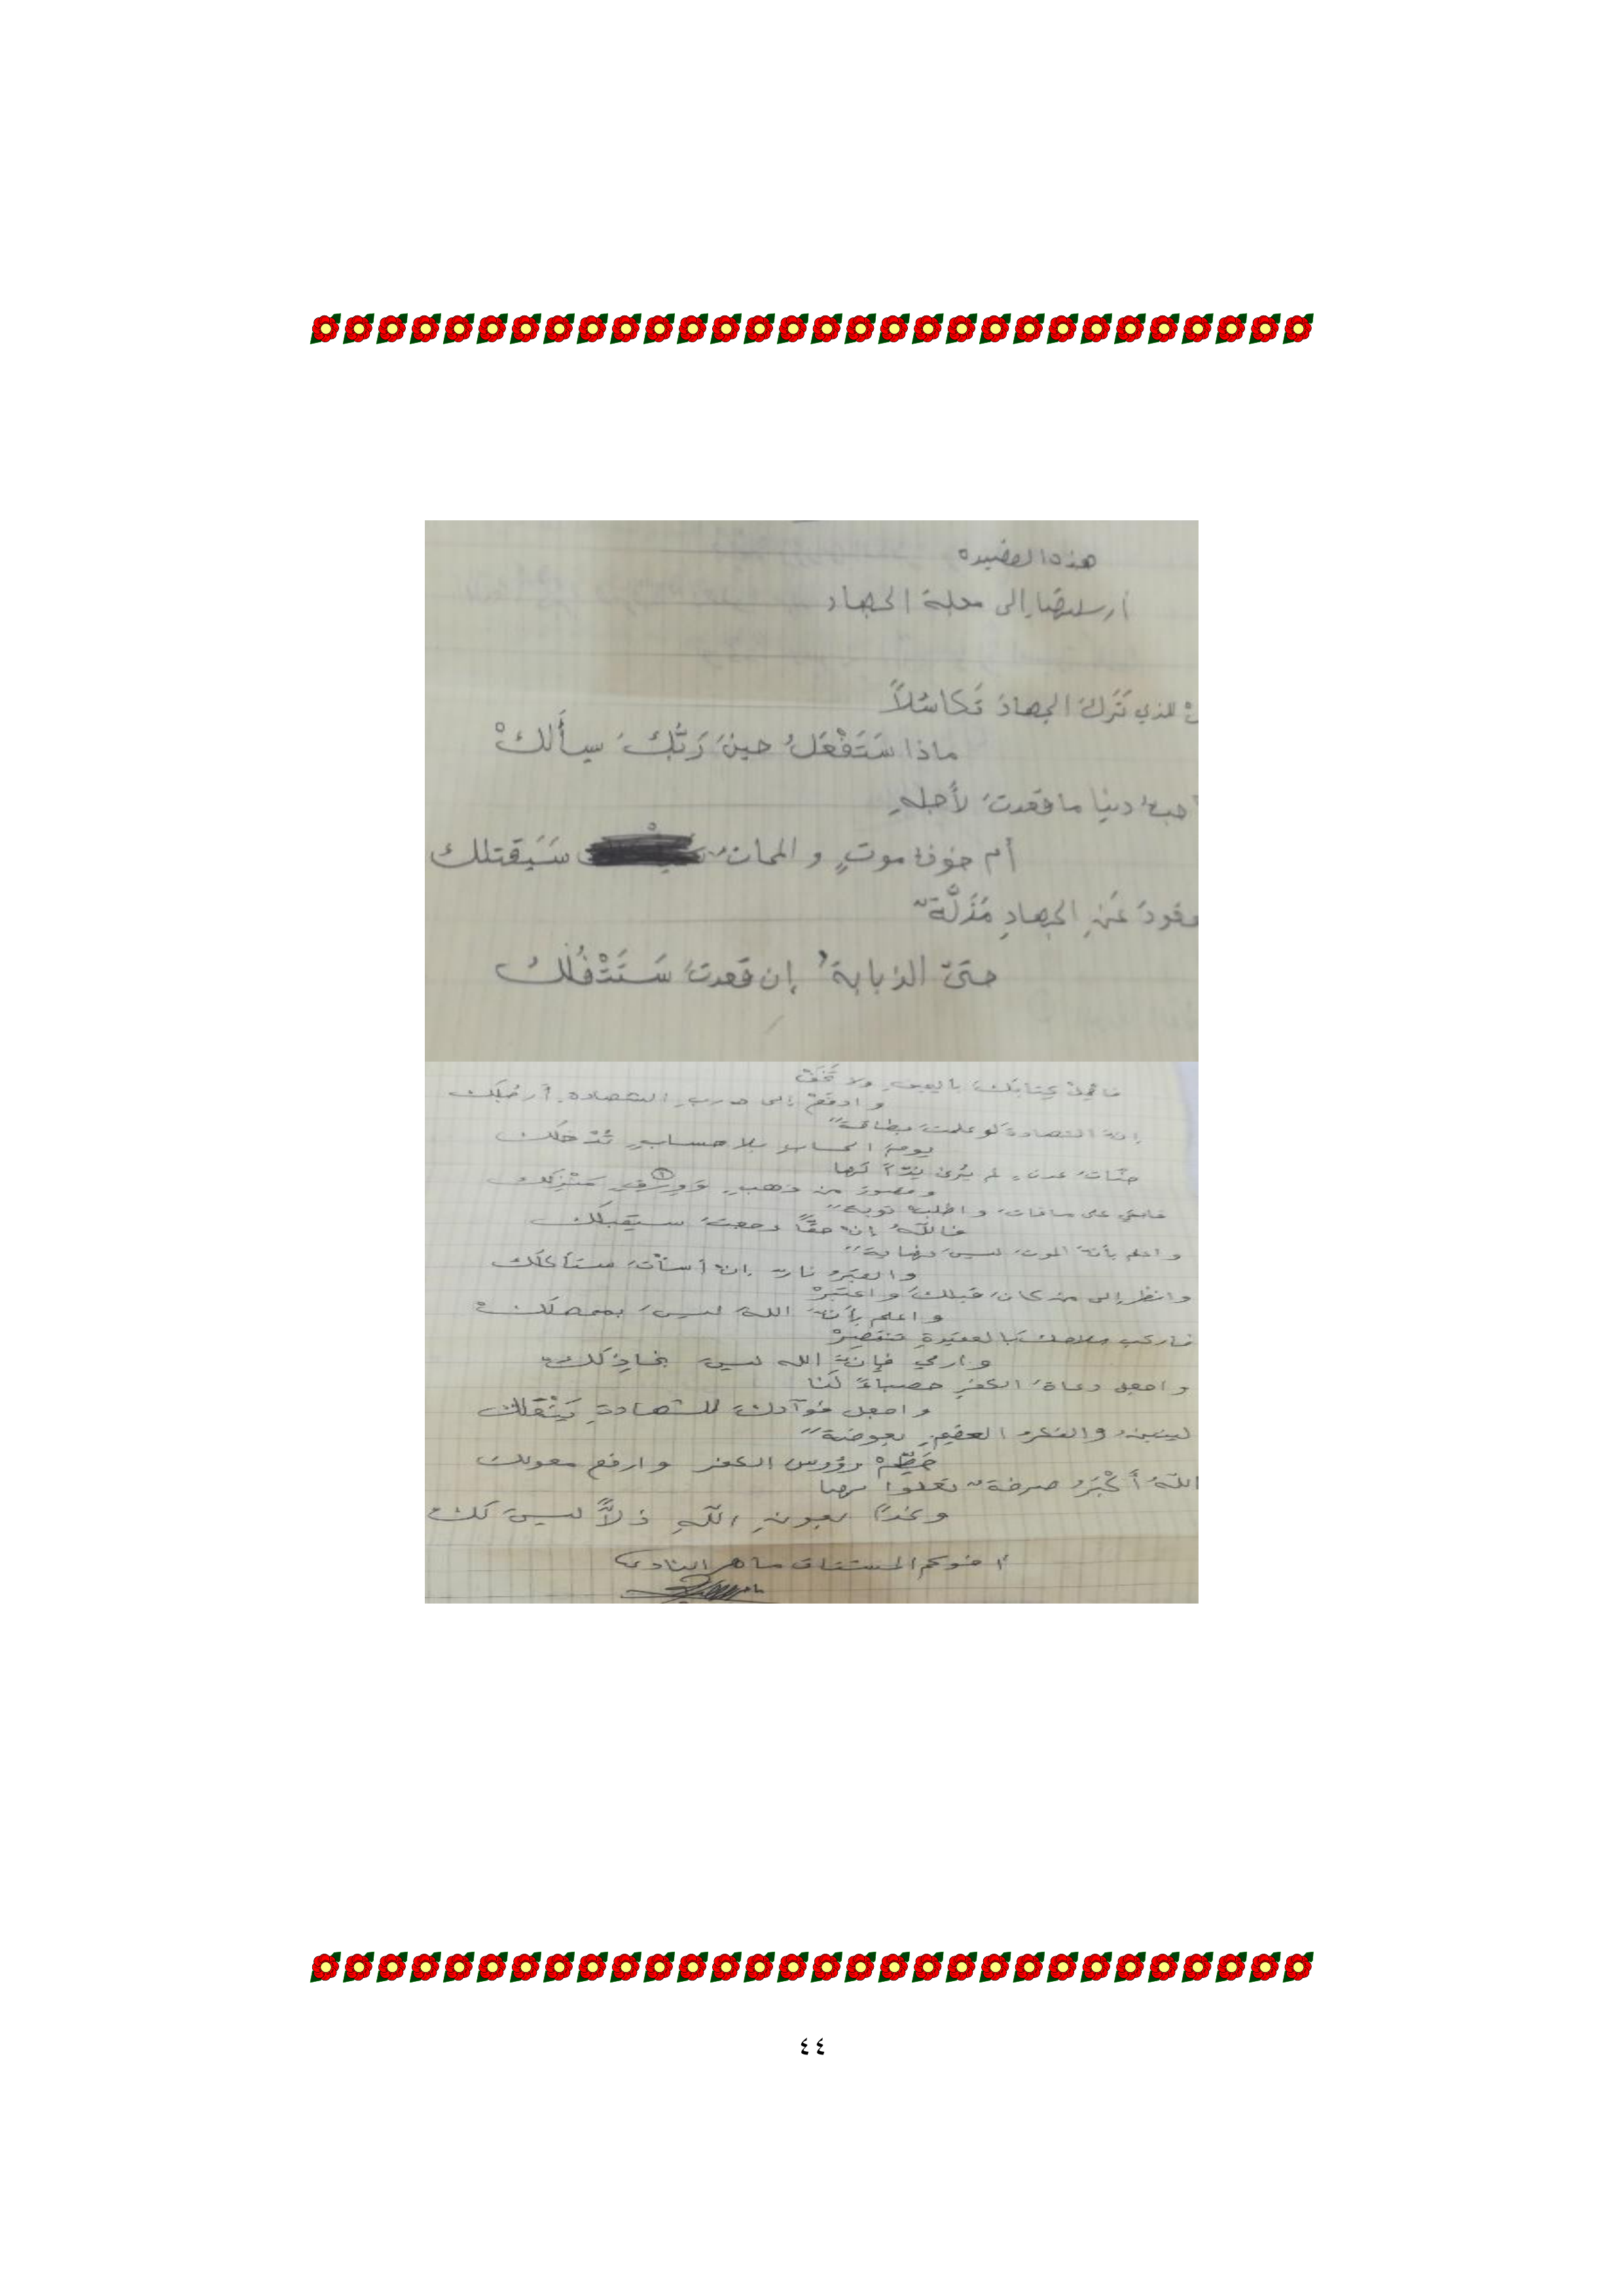 هذه القصيده
أرسلتها إلى مجلة الجهاد
للذي تَرَكَ الجهادَ تَكاسُلاً
ماذا سَتَفْعَلُ حينَ رَبُّكَ سيسأَلكْ
دنيا ما قعدتَ لأجلهِ
أم خوفُ موتٍ و سَيَقتلك
عَنِ الجهادِ مَذَلَّةٌ
حتىّ الذبابةُ إن قعدتَ سَتَتْفُلُكْ
كتابكَ باليمينِ ولا تَخَفْ
وادفعْ إلى دربِ الشهادهِ أرجُلَك
إنَّ الشهادةَ لو علمتَ بطاقةٌ
يومَ الحسابِ بلا حسابٍ تُدْخلك
جنّاتُ عدنٍ لم يُرى نِدّاً لها
وقصورُ من ذهبٍ
على مافاتَ واطلب توبةً
فاللهُ إن حقّاً رجعتَ سيَقبلك
واعلم بأنَّ الموتَ ليسَ نهايةً
والقبرُ نارٌ إن أسأتَ ستأكلَك
وانظر إلى من كانَ قبلكَ واعتَبِرْ
واعلم بأنَّ اللهَ ليسَ بمهملَكْ
بالعقيدةِ تنتصِرْ
وارمي فإنَّ الله ليسَ بخاذِلَك
واجعل دعاةَ الكفرِ لنا
واجعل فوآدكَ للشهادةِ
والفكرُ العقيمِ بعوضةٌ
حَطِّمْ رؤوس الكفر وارفع معولك
اللهُ أَكْبَرُ صرخةٌ تعلوا بها
وغداً بعونِ اللّهِ ذلاًّ ليسَ لَكْ
أخوكم المشتاق ماهر
٤٤